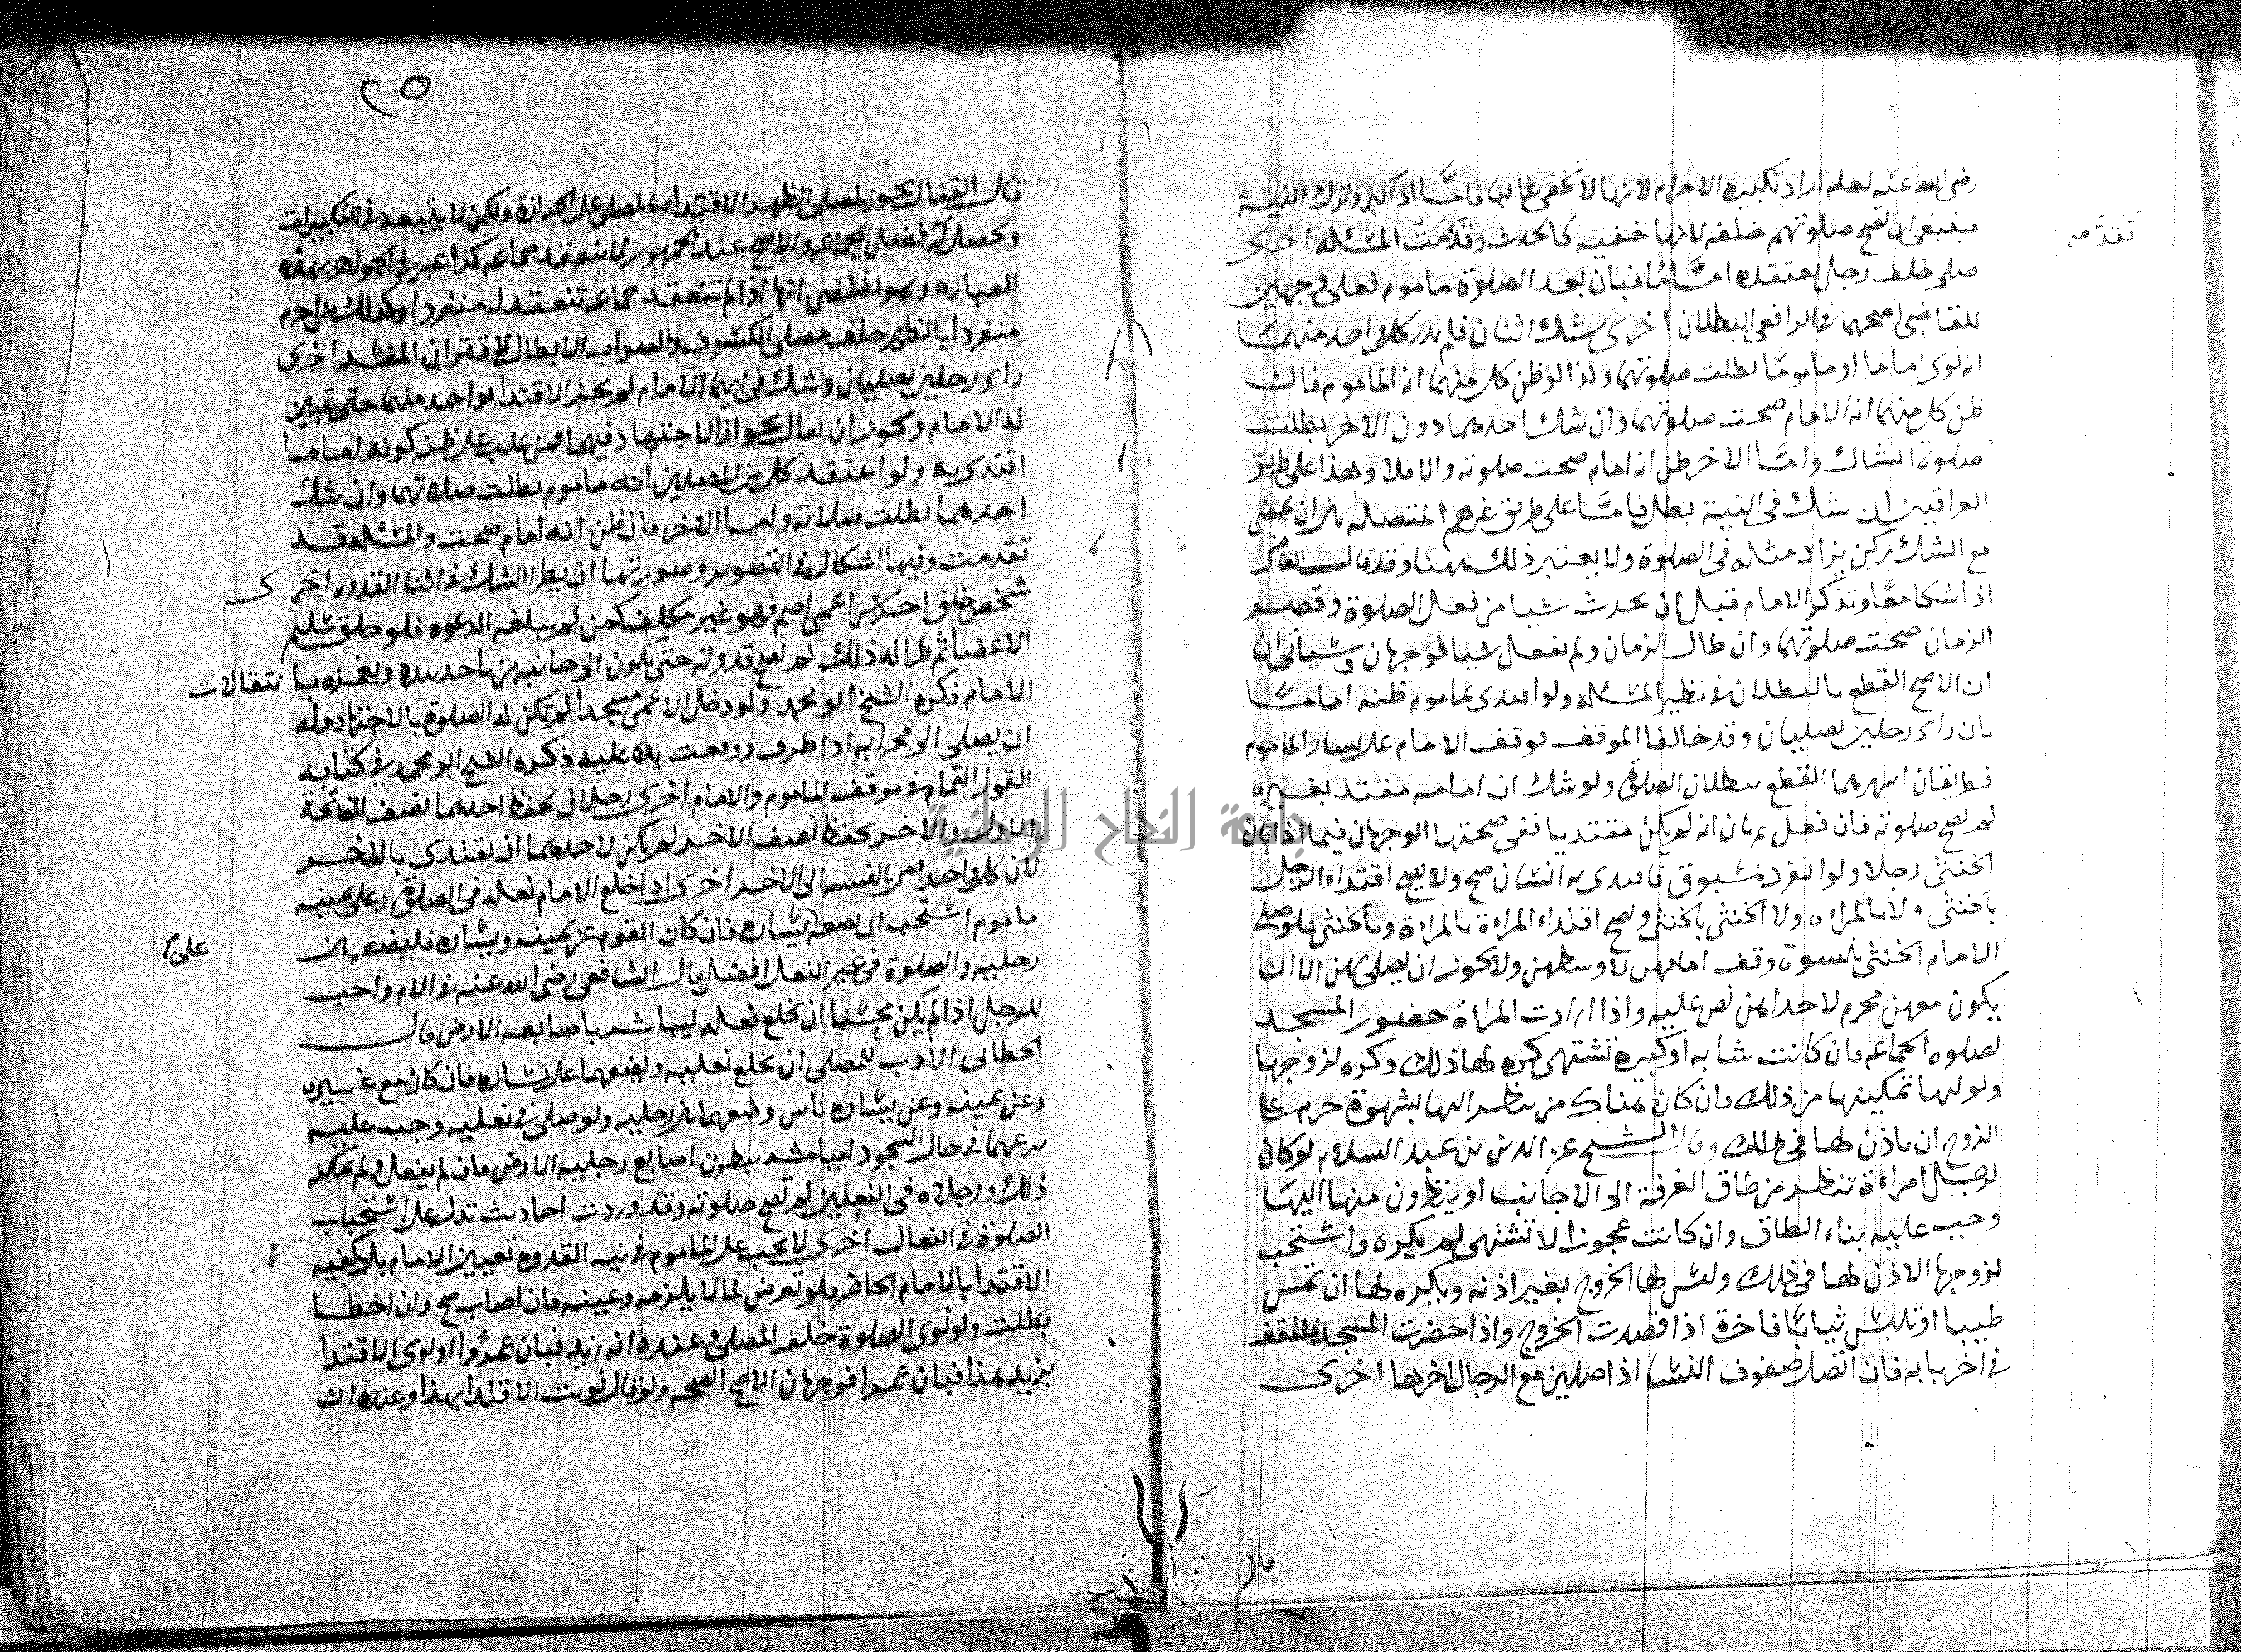 رضى الله عنه لعله اراد تكبيرة الاحرام لانها لا تخفى غالبا فامّا اذا كبر وترك النية
فينبغى ان تصح صلوتهم خلفه لانها خفيه كالحدث وقد تقدمت المسئله اخرى
تقدّ صح
صلى خلف رجل يعتقده امّا فبان بعد الصلوة ماموم فعلى وجهين
للقاضى اصحهما فى الرافعى البطلان اخرى شك اثنان فلم يدر كل واحد منهما
انه نوى اماما او ماموما بطلت صلوتهما ولذا لو ظن كل منهما انه الماموم فان
ظن كل منهما انه الامام صحت صلوتهما وان شك احدهما دون الاخر بطلت
صلوة الشاك وامّا الاخر ظن انه امام صحت صلوته والا فلا وهذا على طريق
العراقيين ان شك فى النية بطل فامّا على طريق غيرهم المتصله بان ان يمضى
مع الشك ركن يزاد مثله فى الصلوة ولا يعتبر ذلك ههنا وقد قال
اذا شكا معًا وتذكر الامام قبل ان يحدث شيا من فعل الصلوة وقصر
الزمان صحت صلوتهما وان طال الزمان ولم يفعل شيا فوجهان وسياتى ان
ان الاصح القطع بالبطلان فى نظير المسئله ولو اقتدى بماموم ظنه اماما
بان راى رجلين يصليان وقد خالفا الموقف فوقف الامام على يسار الماموم
فطريقان اشهرهما القطع ببطلان الصلوة ولو شك ان امامه مقتد بغيره
لم تصح صلوته فان فعل ثم بان انه لم يكن مقتديا ففى صحتها الوجهان فيما اذا بان
الخنثى رجلا ولو انفرد مسبوق فاقتدى به انسان صح ولا يصح اقتداء الرجل
بالخنثى ولا بالمراه ولا الخنثى بالخنثى ويصح اقتداء المراة بالمراة وبالخنثى فلو صلى
الامام الخنثى بنسوة وقف امامهن لا وسطهن ولا يجوز ان يصلى بهن الا ان
يكون معهن محرم لاحداهن نص عليه واذا ارادت المراة حضور المسجد
لصلوه الجماعه فان كانت شابه او كبيرة تشتهى كره لها ذلك وكره لزوجها
ولوليها تمكينها من ذلك فان كان هناك من ينظر اليها بشهوة حرم على
الزوج ان ياذن لها فى ذلك وقال الشيخ عز الدين بن عبد السلام لو كان
لرجل امراءة تنظر من طاق الغرفة الى الاجانب او ينظرون منها اليها
وجب عليه بناء الطاق وان كانت عجوزا لا تشتهى لم يكره واستحب
لزوجها الاذن لها فى ذلك وليس لها الخروج بغير اذنه ويكره لها ان تمس
طيبا او تلبس ثيابا فاخرة اذا قصدت الخروج واذا حضرت المسجد فلتقف
فى اخر بابه فان اتصل صفوف النسا اذا صلين مع الرجال اخرها اخرى
قال
٢٥
قال القفال يجوز لمصلى الظهر الاقتداء بالمصلى على الجنازة ولكن لا يتبعه فى التكبيرات
وتحصل له فضل الجماعه والاصح عند الجمهور لا تنعقد جماعه كذا عبر فى الجواهر بهذه
العباره وهو يقتضى انها اذا لم تنعقد جماعه تنعقد له منفردا وكذلك من احرم
منفردا بالظهر خلف مصلى الكسوف والصواب الابطال لاقتران المفسد اخرى
راى رجلين يصليان وشك فى ايهما الامام لم يجز الاقتدا بواحد منهما حتى يتبين
له الامام ويجوز ان يقال بجواز الاجتهاد فيهما فمن غلب على ظنه كونه اماما
اقتدى به ولو اعتقد كل من المصلين انه ماموم بطلت صلاتهما وان شك
احدهما بطلت صلاته واما الاخر فان ظن انه امام صحت والمسئله قد
تقدمت وفيها اشكال فى التصوير وصورتها ان يطرا الشك فى اثنا القدوه اخرى
شخص خلق اخرس اعمى اصم فهو غير مكلف كمن لم يبلغه الدعوه فلو خلق سليم
الاعضا ثم طرا له ذلك لم تصح قدوته حتى يكون الى جانبه من ياخذ بيده ويغمزه بانتقالات
الامام ذكره الشيخ ابو محمد ولو دخل الاعمى مسجدا لم تكن له الصلوة بالاجتهاد وله
ان يصلى الى محرابه اذا طرف ووقعت يده عليه ذكره الشيخ ابو محمد فى كتابه
القول التمام فى موقف الماموم والامام اخرى رجلان يحفظ احدهما نصف الفاتحة
الاول والاخر يحفظ نصف الاخر لم يكن لاحدهما ان يقتدى بالاخر
لان كل واحد امى بالنسبه الى الاخر اخرى اذا خلع الامام نعله فى الصلوة وعلى يمينه
ماموم استحب ان يضعه يساره فان كان القوم عن يمينه ويساره فليضعه بين
على صح
رجليه والصلوة فى غير النعل افضل قال الشافعى رضى الله عنه فى الام واحب
للرجل اذا لم يكن محبسنا ان يخلع نعله ليباشر باصابعه الارض قال
الخطابى الادب للمصلى ان يخلع نعليه ويضعهما على يساره فان كان مع غيره
وعن يمينه وعن يساره ناس وضعهما بين رجليه ولو صلى فى نعليه وجب عليه
نزعهما فى حال السجود ليباشر ببطون اصابع رجليه الارض فان لم يفعل ولم يمكنه
ذلك ورجلاه فى النعلين لم تصح صلوته وقد وردت احاديث تدل على استحباب
الصلوة فى النعال اخرى لا يجب على الماموم فى نيه القدوه تعيين الامام بل يكفيه
الاقتدا بالامام الحاضر فلو تعرض لما لا يلزمه وعينه فان اصاب صح وان اخطا
بطلت ولو نوى الصلوة خلف المصلى وعنده انه زيد فبان عمرًوا او نوى الاقتدا
بزيد هذا فبان عمرا فوجهان الاصح الصحه ولو قال نويت الاقتدا بهذا وعنده ان